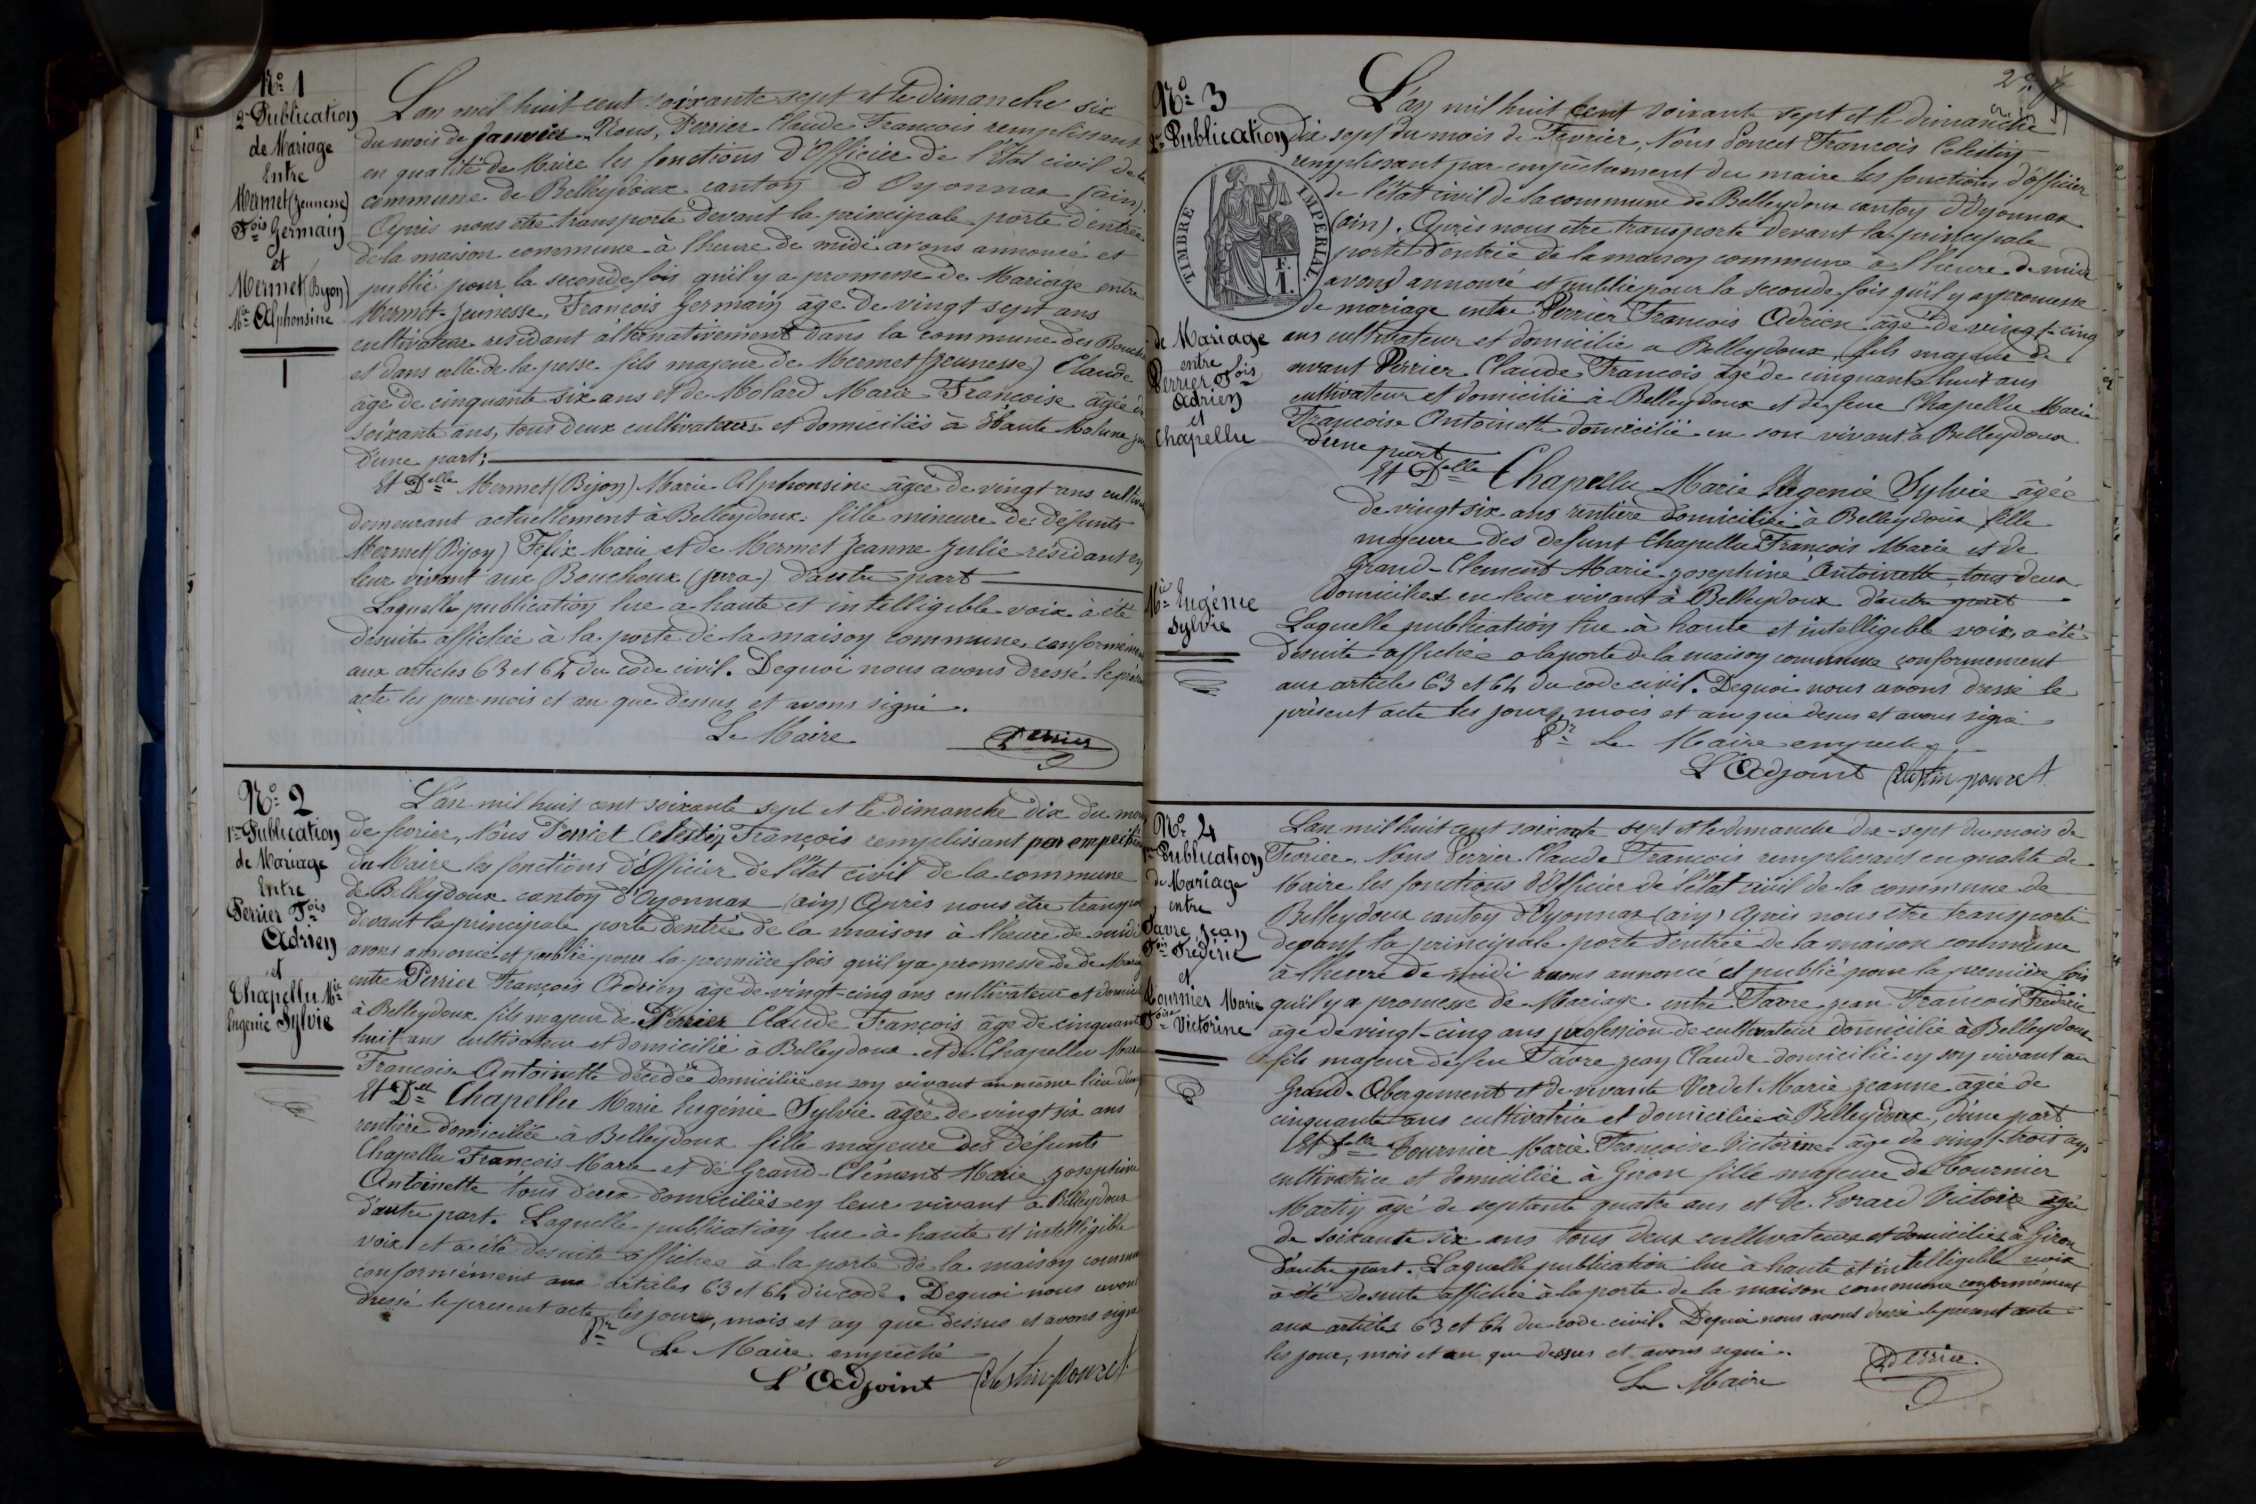 Nº 1
2e Publication
de Mariage
Entre
Mermet (Jeunesse)
Fois Germain
et
Mermet (Bijon)
Mie Alphonsine
L'an mil huit cent soixante sept et le dimanche six
du mois de Janvier. Nous, Perrier Claude François remplissant
en qualité de Maire les fonctions d'Officier de l'état civil de la
commune de Belleydoux canton d'Oyonnax (ain).
Après nous être transporté devant la principale porte d'entrée
de la maison commune à l'heure de midi avons annoncé et
publié pour la seconde fois qu'il y a promesse de Mariage entre
Mermet-Jeunesse, François Germain âgé de vingt sept ans
cultivateur résidant alternativement dans la commune des
et dans celle de la pesse fils majeur de Mermet (Jeunesse) Claude
âgé de cinquante six ans et de Molard Marie Françoise âgée de
soixante ans, tous deux cultivateurs et domiciliés à
d'une part;
Et Delle Mermet (Bijon) Marie Alphonsine âgée de vingt ans
demeurant actuellement à Belleydoux fille mineure des défunts
Mermet (Bijon) Felix Marie et de Mermet Jeanne Julie résidant en
leur vivant aux Bouchoux (jura) d'autre part
Laquelle publication lue a haute et intelligible voix à été
desuite affichée à la porte de la maison commune,
aux articles 63 et 64 du code civil. Dequoi nous avons dressé
acte les jour mois et an que dessus et avons signé.
Le Maire Perrier
Nº 2
1re Publication
de Mariage
Entre
Perrier Fois
Adrien
et
Chapellu Mie
Eugenie Sylvie
L'an mil huit cent soixante sept et le dimanche dix du
de fevrier, Nous Poncet Celestin François remplissant par
du Maire les fonctions d'Officier de l'état civil de la commune
de Belleydoux canton d'Oyonnax (ain) Après nous être
devant la principale porte d'entrée de la maison à l'heure de midi
avons annoncé et publié pour la première fois qu'il y a promesse de de
entre Perrier François Adrien âgé de vingt-cinq ans cultivateur et
à Belleydoux fils majeur de Perrier Claude François âgé de cinquante
huit ans cultivateur et domicilié à Belleydoux et de Chapellu Marie
Françoise Antoinette décédée domiciliée en son vivant au même lieu
Et Delle Chapellu Marie Eugénie Sylvie âgée de vingt six ans
rentière domiciliée à Belleydoux fille majeure des défunts
Chapellu François Marie et de Grand-Clément Marie Josephine
Antoinette tous deux domiciliés en leur vivant à Belleydoux
d'autre part. Laquelle publication lue à haute et intelligible
voix et a été desuite affichée à la porte de la maison
conformément aux articles 63 et 64 du code. Dequoi nous avons
dressé le present acte les jours, mois et an que dessus et avons signé
Pr Le Maire empêché
L'Adjoint Célestin poncet
2
Nº 3
2e Publication
TIMBRE IMPERIAL
F.
1.
de Mariage
entre
Perrier Fois
Adrien
et
Chapellu
Mie Eugénie
Sylvie
L'an mil huit cent soixante sept et le dimanche
dix sept du mois de Fevrier, Nous Poncet François Celestin
remplissant par empêchement du maire les fonctions d'officier
de l'état civil de la commune de Belleydoux canton d'Oyonnax
(ain). Après nous être transporté devant la principale
porte d'entrée de la maison commune à l'heure de midi
avons annoncé et publié pour la seconde fois qu'il y a promesse
de mariage entre Perrier François Adrien âgé de vingt-cinq
ans cultivateur et domicilié a Belleydoux, fils majeur de
vivant Perrier Claude François âgé de cinquante huit ans
cultivateur et domicilié à Belleydoux et de feue Chapellu Marie
Françoise Antoinette domicilié en son vivant à Belleydoux
d'une part
Et Delle Chapellu Marie Eugenie Sylvie âgée
de vingt six ans rentière domiciliée à Belleydoux fille
majeure des defunt Chapellu François Marie et de
Grand-Clement Marie-Josephine Antoinette tous deux
domiciliés en leur vivant à Belleydoux d'autre part
Laquelle publication lue à haute et intelligible voix, a été
desuite affichée a la porte de la maison commune conformement
aux articles 63 et 64 du code civil. Dequoi nous avons dressé le
présent acte les jours, mois et an que desus et avons signé
Pr Le Maire empeché,
L'Adjoint Célestin poncet
Nº 4
1re Publication
de Mariage
entre
Favre Jean
Fois Frédéric
et
Tournier Marie
Foise Victorine
L'an mil huit cent soixante sept et le dimanche dix-sept du mois de
Fevrier. Nous Perrier Claude François remplissant en qualité de
Maire les fonctions d'Officier de l'état civil de la commune de
Belleydoux canton d'Oyonnax (ain) Après nous être transporté
devant la principale porte d'entrée de la maison commune
à l'heure de midi avons annoncé et publié pour la première fois
qu'il y a promesse de Mariage entre Favre Jean François Frédéric
âgé de vingt-cinq ans profession de cultivateur domicilié à Belleydoux
fils majeur de feu Favre Jean Claude domicilié en son vivant au
Grand-Abergement et de vivante Verdet Marie Jeanne âgée de
cinquante ans cultivatrice et domiciliée à Belleydoux, d'une part
Et Delle Tournier Marie Françoise Victorine âgé de vingt-trois ans
cultivatrice et domiciliée à Giron fille majeure de Tournier
Martin âgé de septante quatre ans et de Evrard Victoire âgée
de soixante six ans tous deux cultivateurs et domiciliés à Giron
d'autre part. Laquelle publication lue à haute et intelligible voix
a été desuite affichée à la porte de la maison commune conformément
aux articles 63 et 64 du code civil. Dequoi nous avons dressé le present acte
les jour, mois et an que dessus et avons signé.
Le Maire Perrier.